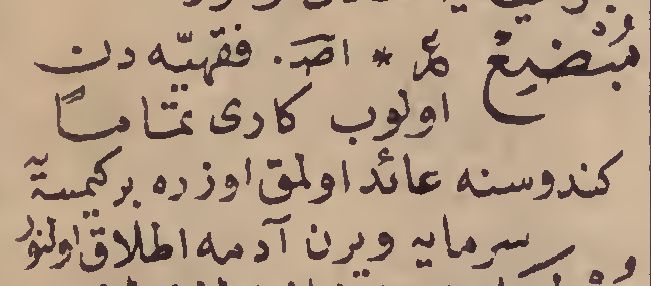 مُبْضِعْ عر * اصـ. فقهيّه دن
اولوب كارى تماماً
كندوسنه عائد اولمق اوزره بر كيمسيّه
سرمايه ويرن آدمه اطلاق اولنور